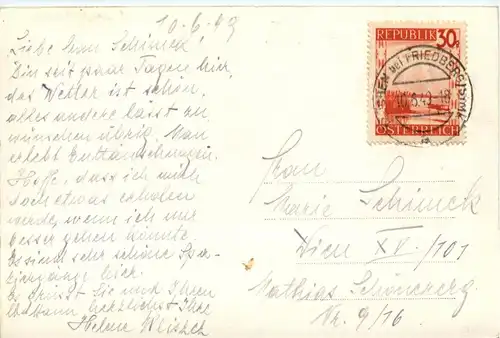 10.6.49
Liebe Frau Schimek,
Bin seit paar Tagen hier,
das Wetter ist schön,
alles andere lässt zu
wünschen übrig. Man
erlebt Enttäuschungen.
Hoffe, dass ich mich
doch etwas erholen
werde, wenn ich nur
besser gehen könnte.
Es sind sehr schöne Spa-
ziergänge hier.
Es grüsst Sie und Ihren
herzlichst Ihre
Helene
REPUBLIK 30g
ÖSTERREICH
BEI FRIEDBERG (STMK
10.6.49-18
Frau
Marie Schimek
Wien XV./101
Mathias Schönererg
Nr. 9/16